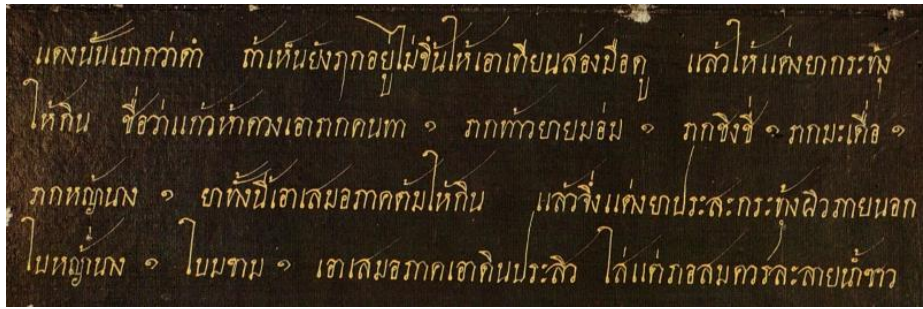 แดงนั้นเบากว่าดำ ถ้าเห็นยังฦกอยู่ไม่ขึ้นให้เอาเทียนส่องมือดู แล้วให้แต่งยากระทุ้ง
ให้กิน ชื่อว่าแก้วห้าดวงเอารากคนทา ๑ รากท้าวยายม่อม ๑ รากชิงชี่ ๑ รากมะเดื่อ ๑
รากหญ้านาง ๑ ยาทั้งนี้เอาเสมอภาคต้มให้กิน แล้วจึ่งแต่งยาประสะกระทุ้งผิวภายนอก
ใบหญ้านาง ๑ ใบมขาม ๑ เอาเสมอภาคเอาดินประสิว ใส่แต่พอสมควรละลายน้ำซาว